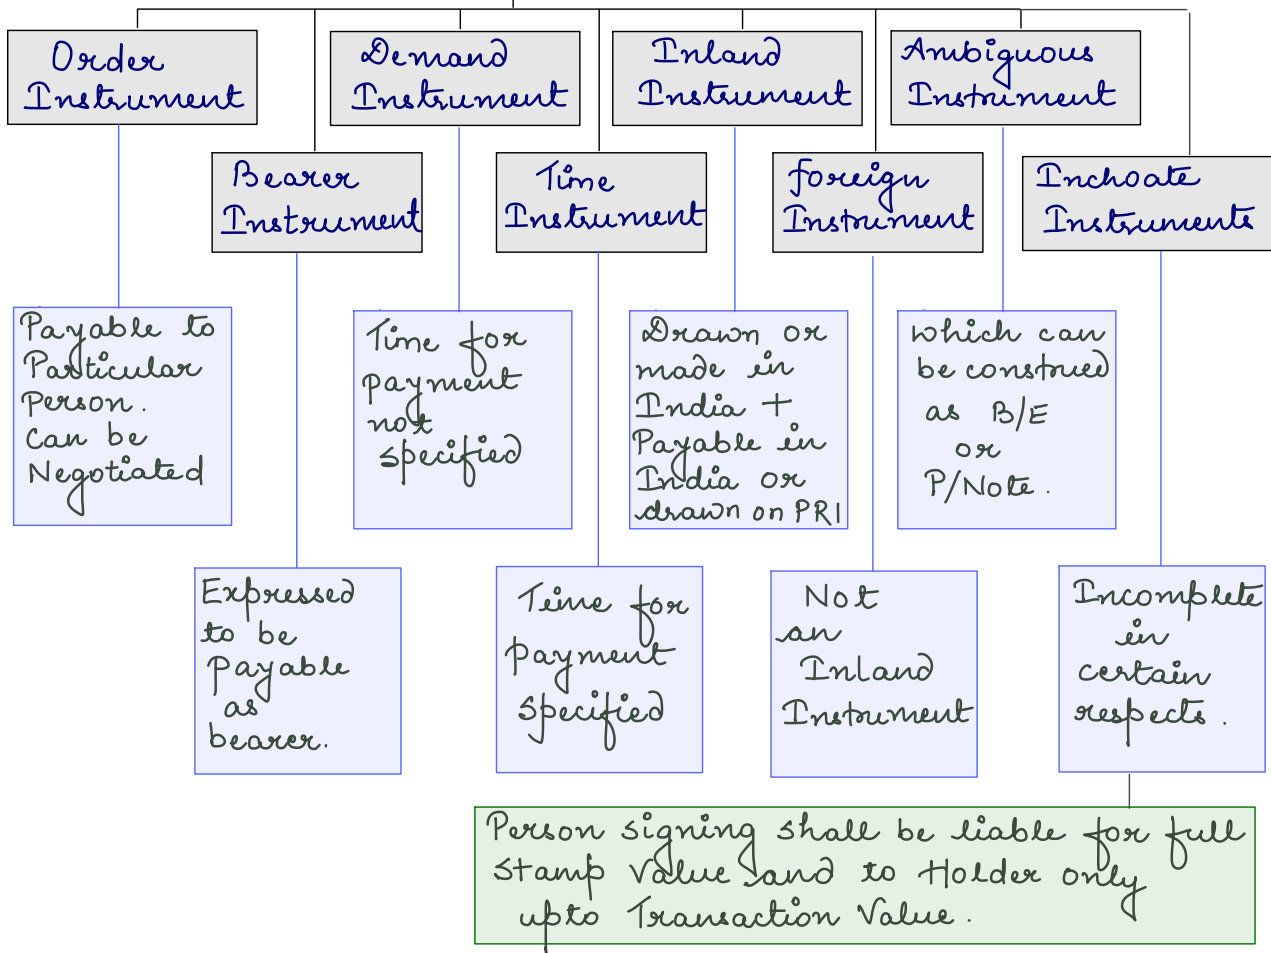 Order
Instrument
Demand
Instrument
Inland
Instrument
Ambiguous
Instrument
Bearer
Instrument
Time
Instrument
foreign
Instrument
Inchoate
Instruments
Payable to
Particular
Person.
Can be
Negotiated
Time for
payment
not
specified
Drawn or
made in
India +
Payable in
India or
drawn on PRI
which can
be construed
as B/E
or
P/Note.
Expressed
to be
payable
as
bearer.
Time for
payment
specified
Not
an
Inland
Instrument
Incomplete
in
certain
respects.
Person signing shall be liable for full
Stamp Value and to Holder only
upto Transaction Value.